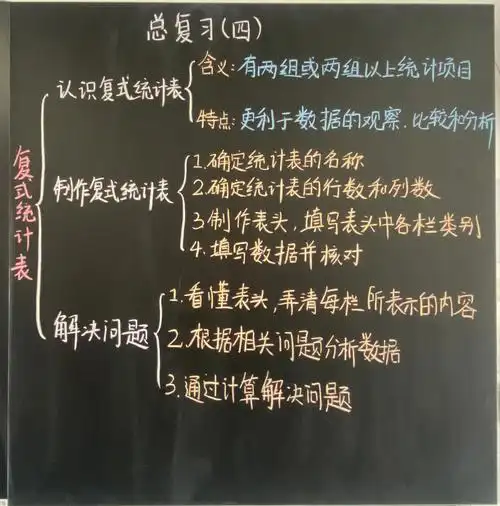 总复习(四)
复式统计表
认识复式统计表
含义:有两组或两组以上统计项目
特点:更利于数据的观察.比较和分析
制作复式统计表
1.确定统计表的名称
2.确定统计表的行数和列数
3.制作表头,填写表头中各栏类别
4.填写数据并核对
解决问题
1.看懂表头,弄清每栏所表示的内容
2.根据相关问题分析数据
3.通过计算解决问题